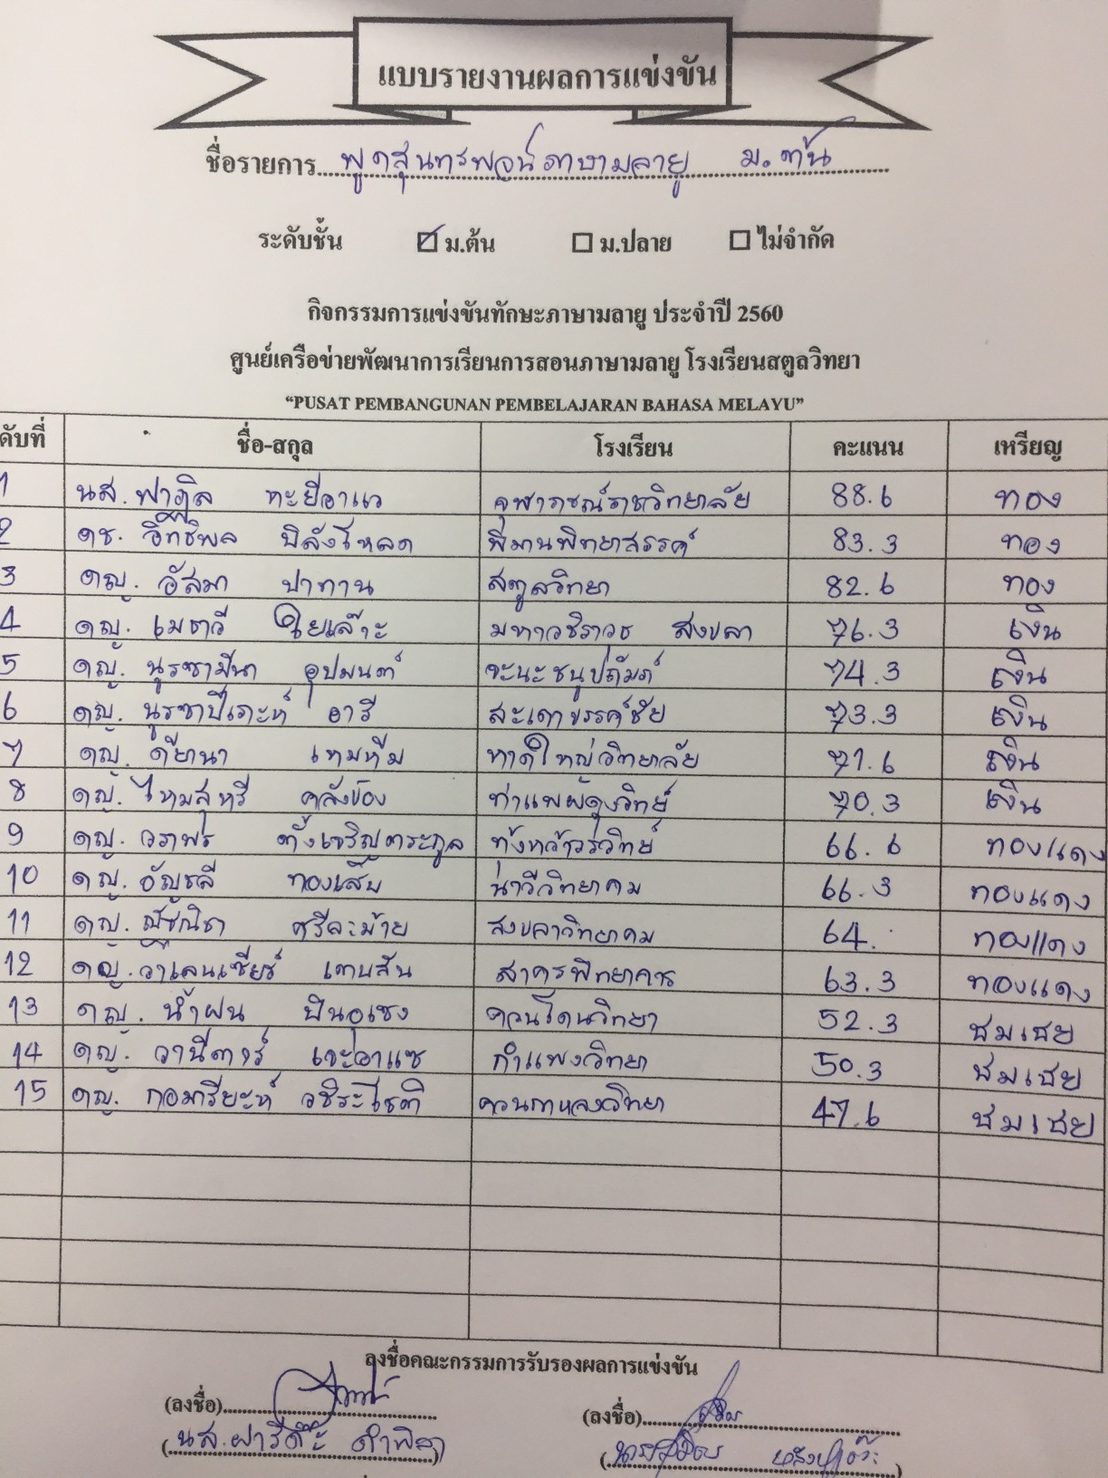 แบบรายงานผลการแข่งขัน
ชื่อรายการ พูดสุนทรพจน์ภาษามลายู ม.ต้น
ระดับชั้น ☑ ม.ต้น ☐ ม.ปลาย ☐ ไม่จำกัด
กิจกรรมการแข่งขันทักษะภาษามลายู ประจำปี 2560
ศูนย์เครือข่ายพัฒนาการเรียนการสอนภาษามลายู โรงเรียนสตูลวิทยา
“PUSAT PEMBANGUNAN PEMBELAJARAN BAHASA MELAYU”
ดับที่ ชื่อ-สกุล โรงเรียน คะแนน เหรียญ
1 นส. ทะยีอาแว จุฬาภรณ์ราชวิทยาลัย 88.6 ทอง
2 ดช. อิทธิพล ปิลังโหลด พิมานพิทยาสรรค์ 83.3 ทอง
3 ดญ. อัสมา ปาทาน สตูลวิทยา 82.6 ทอง
4 ดญ. เมธาวี มหาวชิราวุธ สงขลา 76.3 เงิน
5 ดญ. นูรซามีนา อุปมนต์ จะนะชนูปถัมภ์ 74.3 เงิน
6 ดญ. อารี สะเดาขรรค์ชัย 73.3 เงิน
7 ดญ. ดียานา เหมหีม หาดใหญ่วิทยาลัย 71.6 เงิน
8 ดญ. ไหมสุหรี คลังข้อง ท่าแพผดุงวิทย์ 70.3 เงิน
9 ดญ. วราพร ตั้งเจริญตระกูล ทุ่งหว้าวรวิทย์ 66.6 ทองแดง
10 ดญ. อัญชลี ทองเส็บ นาวีวิทยาคม 66.3 ทองแดง
11 ดญ. ณัชณิชา ศรีละม้าย สงขลาวิทยาคม 64. ทองแดง
12 ดญ. วาเลนเซียร์ เตบสัน สาครพิทยาคาร 63.3 ทองแดง
13 ดญ. น้ำฝน ปินอุเซง ควนโดนวิทยา 52.3 ชมเชย
14 ดญ. วานีตาร์ เจะอาแซ กำแพงวิทยา 50.3 ชมเชย
15 ดญ. กอมารียะห์ วชิระโชติ ควนกาหลงวิทยา 47.6 ชมเชย
ลงชื่อคณะกรรมการรับรองผลการแข่งขัน
(ลงชื่อ) (ลงชื่อ)
(นส.ฝารีด๊ะ)